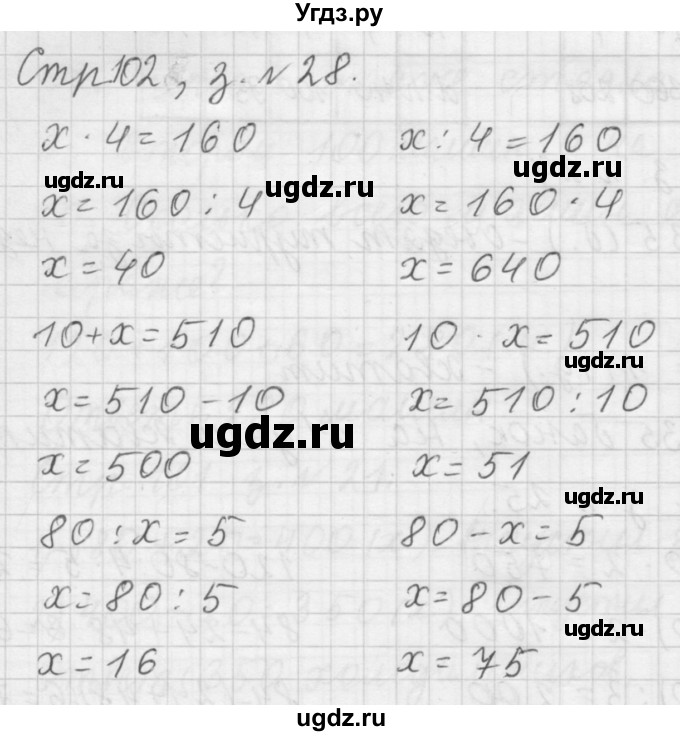 Угдз.ру
Стр102, з. №28.
x · 4 = 160
x : 4 = 160
ugdz.ru
ugdz.ru
ugdz.ru
x = 160 : 4
x = 160 · 4
x = 40
x = 640
10 + x = 510
10 · x = 510
ugdz.ru
x = 510 - 10
x = 510 : 10
ugdz.ru
x = 500
x = 51
ugdz.ru
80 : x = 5
80 - x = 5
x = 80 : 5
x = 80 - 5
ugdz.ru
x = 16
x = 75
ugdz.ru